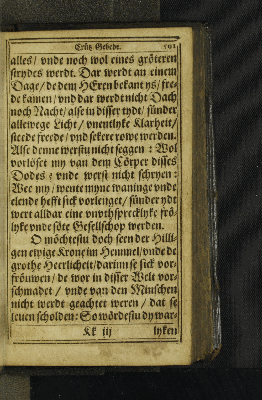 Crütz Gebede. 501
alles/ vnde noch wol eines gröteren
strydes werdt. Dar werdt an einem
Dage/ de dem HEren bekant ys/ fre-
de kamen/ vnd dar werdt nicht Dach
noch Nacht/ alse in disser tydt/ sünder
allewege Licht/ vnentlyke Klarheyt/
stede frede/ vnd sekere rowe werden.
Alse denne werstu nicht seggen: Wol
vorlöset my van dem Cörper disses
Dodes? vnde werst nicht schryen:
Wee my/ wente myne waninge vnde
elende hefft sick vorlenget/ sünder ydt
wert alldar eine vnvthsprecklyke frö-
lyke vnde söte Gesellschop werden.
O möchtestu doch seen der Hilli-
gen ewige Krone im Hemmel/ vnde de
grothe Heerlicheit/ darinn se sick vor-
fröuwen/ de wor in disser Welt vor-
schmadet/ vnde van den Minschen
nicht werdt geachtet weren/ dat se
leuen scholden: So wördestu dy war-
Kk iij lyken